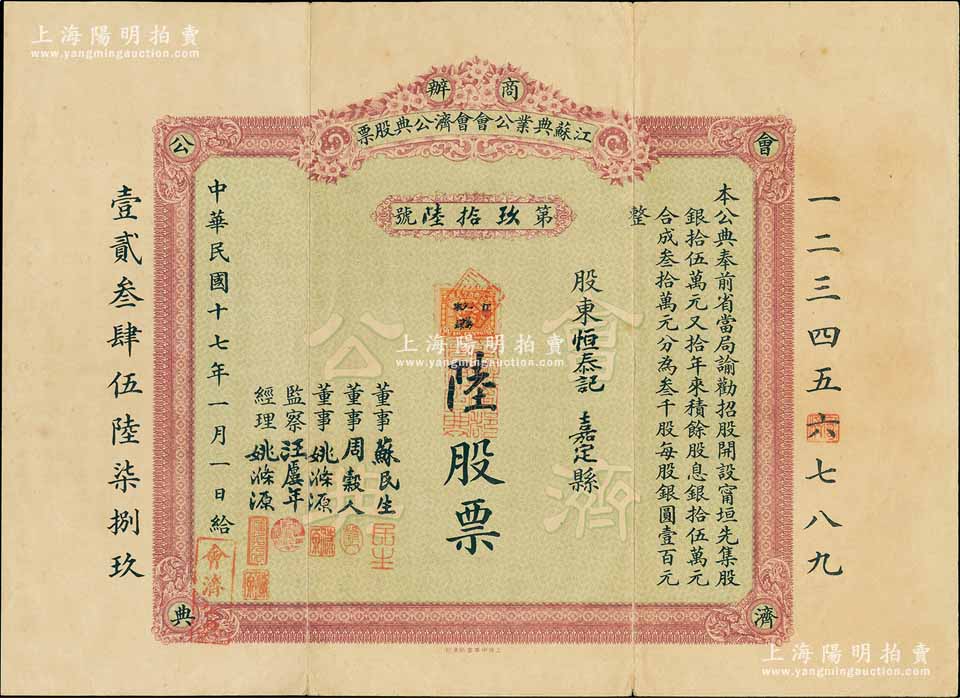 上海陽明拍賣
www.yangmingauction.com
商辦
江蘇典業公會會濟公典股票
會濟公典
第玖拾陸號
一二三四五六七八九
本公典奉前省當局諭勸招股開設甯垣先集股
銀拾伍萬元又拾年來積餘股息銀拾伍萬元
合成叁拾萬元分為叁千股每股銀圓壹百元
整
股東恒泰記 嘉定縣
陸股票
會濟
公典
董事蘇民生
董事周穀人
董事姚滌源
監察汪虞年
經理姚滌源
中華民國十七年一月一日給
會濟
壹貳叁肆伍陸柒捌玖
上海陽明拍賣
www.yangmingauction.com
上海陽明拍賣
www.yangmingauction.com